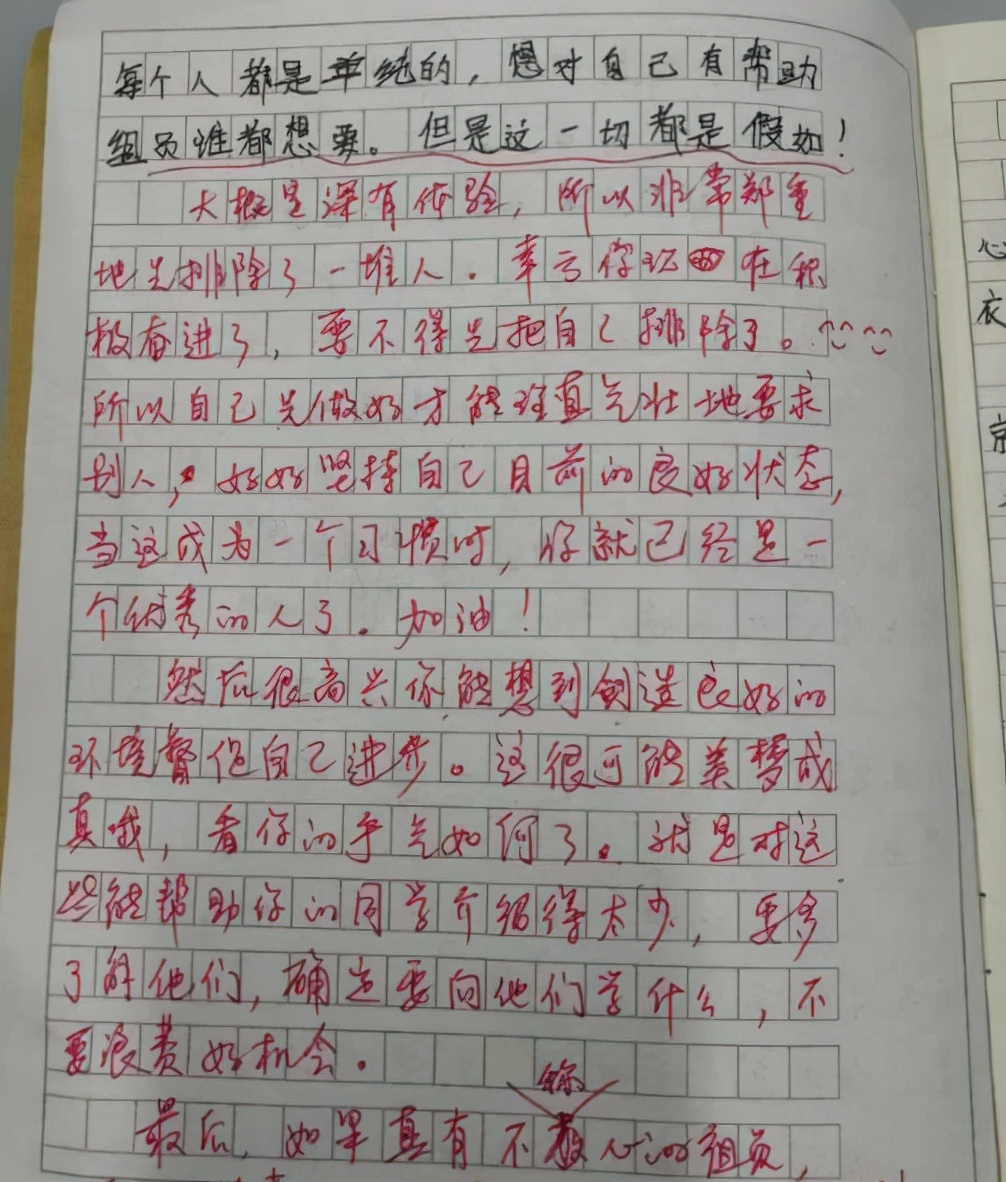 每个人都是单纯的，想对自己有帮助
组员谁都想要。但是这一切都是假如！
大概是深有体验，所以非常郑重
地先排除了一堆人。幸亏你现在积
极奋进了，要不得先把自己排除了。
所以自己先做好才能理直气壮地要求
别人，好好坚持自己目前的良好状态，
当这成为一个习惯时，你就已经是一
个优秀的人了。加油！
然后很高兴你能想到创造良好的
环境督促自己进步。这很可能美梦成
真哦，看你的手气如何了。就是对这
些能帮助你的同学介绍得太少，要多
了解他们，确定要向他们学什么，不
要浪费好机会。
称
最后，如果真有不心的组员，
心
衣
京